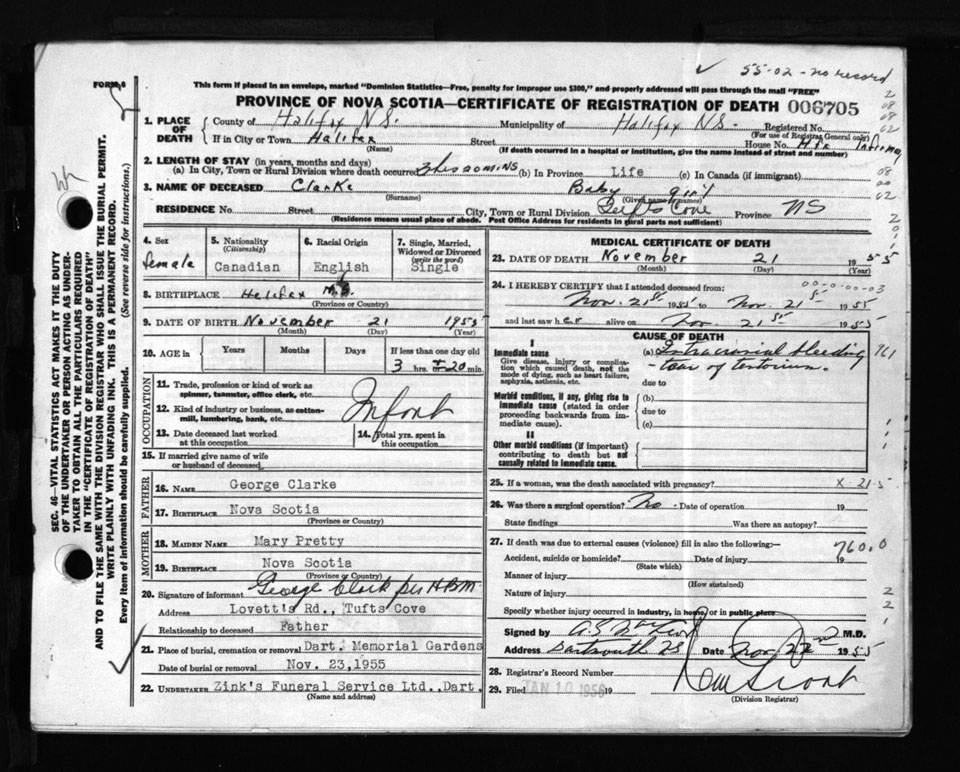 ✓ 55-02-no record
FORM 6
This form if placed in an envelope, marked "Dominion Statistics—Free, penalty for improper use $300," and properly addressed will pass through the mail "FREE"
PROVINCE OF NOVA SCOTIA—CERTIFICATE OF REGISTRATION OF DEATH 006705
SEC. 46—VITAL STATISTICS ACT MAKES IT THE DUTY
OF THE UNDERTAKER OR PERSON ACTING AS UNDER-
TAKER TO OBTAIN ALL THE PARTICULARS REQUIRED
IN THE "CERTIFICATE OF REGISTRATION OF DEATH"
AND TO FILE THE SAME WITH THE DIVISION REGISTRAR WHO SHALL ISSUE THE BURIAL PERMIT.
WRITE PLAINLY WITH UNFADING INK. THIS IS A PERMANENT RECORD.
Every item of information should be carefully supplied. (See reverse side for instructions.)
1. PLACE OF DEATH
County of Halifax N.S. Municipality of Halifax N.S. Registered No.
(For use of Registrar General only)
If in City or Town Halifax Street House No. Hfx Infirmary
(Name) (If death occurred in a hospital or institution, give the name instead of street and number)
2. LENGTH OF STAY (in years, months and days)
(a) In City, Town or Rural Division where death occurred 3hrs 20 MINS (b) In Province Life (c) In Canada (if immigrant)
3. NAME OF DECEASED Clarke Baby girl
(Surname) (Given name or names)
RESIDENCE No. Street City, Town or Rural Division Tufts Cove Province NS
(Residence means usual place of abode. Post Office Address for residents in rural parts not sufficient)
4. Sex female
5. Nationality (Citizenship) Canadian
6. Racial Origin English
7. Single, Married, Widowed or Divorced (write the word) Single
8. BIRTHPLACE Halifax N.S.
(Province or Country)
9. DATE OF BIRTH November 21 1955
(Month) (Day) (Year)
10. AGE in Years Months Days If less than one day old
3 hrs. 20 min.
OCCUPATION
11. Trade, profession or kind of work as spinner, teamster, office clerk, etc.
12. Kind of industry or business, as cotton-mill, lumbering, bank, etc. Infant
13. Date deceased last worked at this occupation
14. Total yrs. spent in this occupation
15. If married give name of wife or husband of deceased
FATHER
16. NAME George Clarke
17. BIRTHPLACE Nova Scotia
(Province or Country)
MOTHER
18. MAIDEN NAME Mary Pretty
19. BIRTHPLACE Nova Scotia
(Province or Country)
20. Signature of informant George Clark per HBM
Address Lovett's Rd., Tufts Cove
Relationship to deceased Father
21. Place of burial, cremation or removal Dart. Memorial Gardens
Date of burial or removal Nov. 23,1955
22. UNDERTAKER Zink's Funeral Service Ltd., Dart.
(Name and address)
MEDICAL CERTIFICATE OF DEATH
23. DATE OF DEATH November 21 1955
(Month) (Day) (Year)
24. I HEREBY CERTIFY that I attended deceased from: 00-0-00-03
Nov. 21st 1955 to Nov. 21st 1955
and last saw her alive on Nov. 21st 1955
CAUSE OF DEATH
I
Immediate cause
Give disease, injury or complication which caused death, not the mode of dying, such as heart failure, asphyxia, asthenia, etc.
(a) Intracranial bleeding 761
-tear of tentorium.
due to
Morbid conditions, if any, giving rise to immediate cause (stated in order proceeding backwards from immediate cause).
(b)
due to
(c)
II
Other morbid conditions (if important) contributing to death but not causally related to immediate cause.
25. If a woman, was the death associated with pregnancy? X 21.5
26. Was there a surgical operation? No Date of operation 19
State findings Was there an autopsy?
27. If death was due to external causes (violence) fill in also the following:— 760.0
Accident, suicide or homicide? Date of injury 19
(State which)
Manner of injury
(How sustained)
Nature of injury
Specify whether injury occurred in industry, in home, or in public place
Signed by M.D.
Address Dartmouth NS Date Nov 22nd 1955
28. Registrar's Record Number
29. Filed JAN 10 1956 19
(Division Registrar)